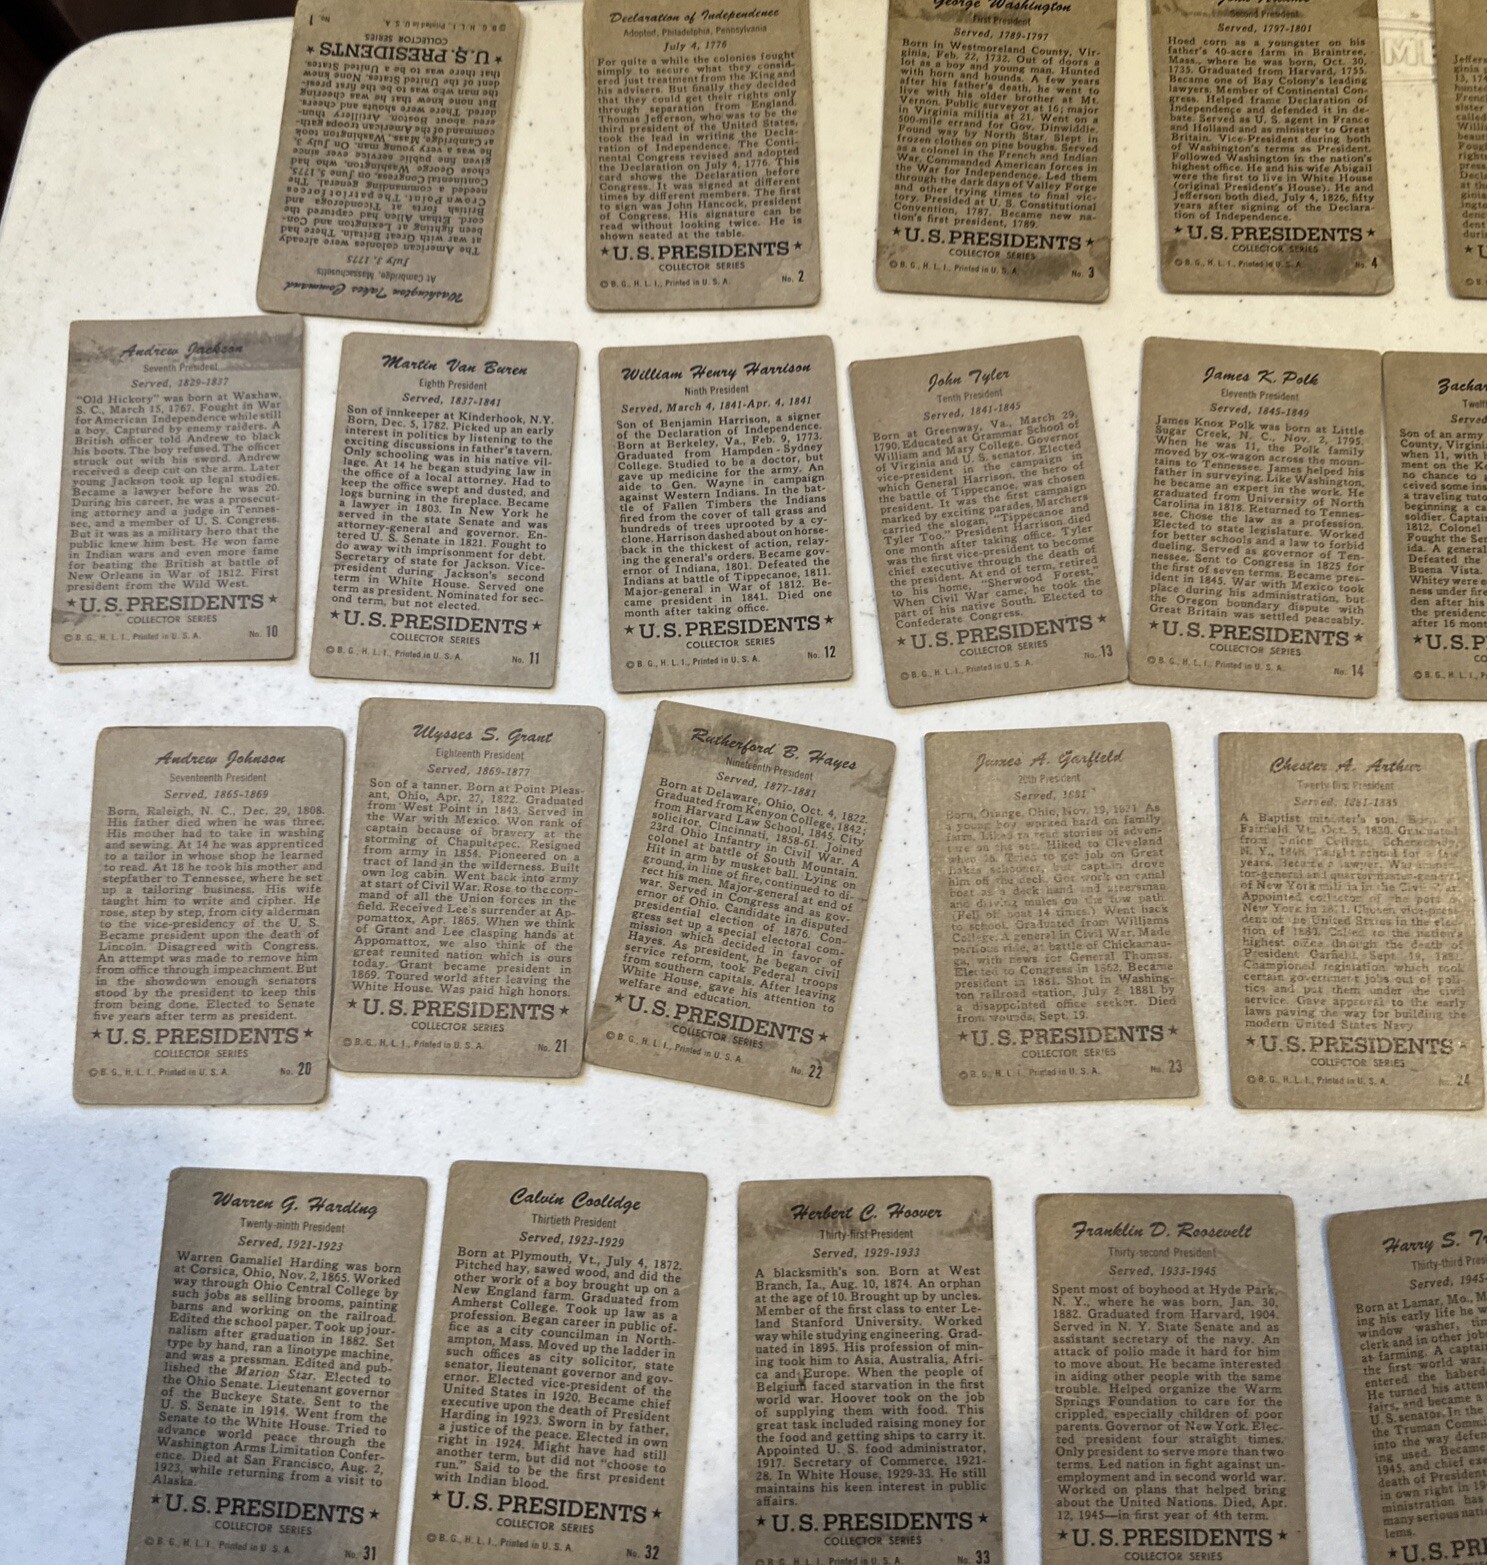 Washington Takes Command
At Cambridge, Massachusetts
July 3, 1775
The American colonies were already
at war with Great Britain. There had
been fighting at Lexington and Con-
cord. Ethan Allen had captured the
British forts at Ticonderoga and
Crown Point. The patriot forces
needed a commanding general. The
Continental Congress, on June 15, 1775,
chose George Washington, who had
given fine public service ever since
he was a very young man. On July 3,
at Cambridge, Mass., Washington took
command of the American troops gath-
ered about Boston. Artillery thun-
dered. There were shouts and cheers.
But none knew that he was cheering
the man who was to be the first presi-
dent of the United States. None knew
that there was to be a United States.
★ U.S. PRESIDENTS ★
COLLECTOR SERIES
© B. G., H. L. I., Printed in U. S. A. No. 1
Declaration of Independence
Adopted, Philadelphia, Pennsylvania
July 4, 1776
For quite a while the colonies fought
simply to secure what they consid-
ered just treatment from the King and
his advisers. But finally they decided
that they could get their rights only
through separation from England.
Thomas Jefferson, who was to be the
third president of the United States,
took the lead in writing the Decla-
ration of Independence. The Conti-
nental Congress revised and adopted
the Declaration on July 4, 1776. This
card shows the Declaration before
Congress. It was signed at different
times by different members. The first
to sign was John Hancock, president
of Congress. His signature can be
read without looking twice. He is
shown seated at the table.
★ U.S. PRESIDENTS ★
COLLECTOR SERIES
© B. G., H. L. I., Printed in U. S. A. No. 2
George Washington
First President
Served, 1789-1797
Born in Westmoreland County, Vir-
ginia, Feb. 22, 1732. Out of doors a
lot as a boy and young man. Hunted
with horn and hounds. A few years
after his father's death, he went to
live with his older brother at Mt.
Vernon. Public surveyor at 16; major
in Virginia militia at 21. Went on a
500-mile errand for Gov. Dinwiddie.
Found way by North Star. Slept in
frozen clothes on pine boughs. Served
as a colonel in the French and Indian
War. Commanded American forces in
the War for Independence. Led them
through the dark days of Valley Forge
and other trying times to final vic-
tory. Presided at U. S. Constitutional
Convention, 1787. Became new na-
tion's first president, 1789.
★ U.S. PRESIDENTS ★
COLLECTOR SERIES
© B. G., H. L. I., Printed in U. S. A. No. 3
Second President
Served, 1797-1801
Hoed corn as a youngster on his
father's 40-acre farm in Braintree,
Mass., where he was born, Oct. 30,
1735. Graduated from Harvard, 1755.
Became one of Bay Colony's leading
lawyers. Member of Continental Con-
gress. Helped frame Declaration of
Independence and defended it in de-
bate. Served as U. S. agent in France
and Holland and as minister to Great
Britain. Vice-President during both
of Washington's terms as President.
Followed Washington in the nation's
highest office. He and his wife Abigail
were the first to live in White House
(original President's House). He and
Jefferson both died, July 4, 1826, fifty
years after signing of the Declara-
tion of Independence.
★ U.S. PRESIDENTS ★
COLLECTOR SERIES
© B. G., H. L. I., Printed in U. S. A. No. 4
Andrew Jackson
Seventh President
Served, 1829-1837
"Old Hickory" was born at Waxhaw,
S. C., March 15, 1767. Fought in War
for American Independence while still
a boy. Captured by enemy raiders. A
British officer told Andrew to black
his boots. The boy refused. The officer
struck out with his sword. Andrew
received a deep cut on the arm. Later
young Jackson took up legal studies.
Became a lawyer before he was 20.
During his career, he was a prosecut-
ing attorney and a judge in Tennes-
see, and a member of U. S. Congress.
But it was as a military hero that the
public knew him best. He won fame
in Indian wars and even more fame
for beating the British at battle of
New Orleans in War of 1812. First
president from the Wild West.
★ U.S. PRESIDENTS ★
COLLECTOR SERIES
© B. G., H. L. I., Printed in U. S. A. No. 10
Martin Van Buren
Eighth President
Served, 1837-1841
Son of innkeeper at Kinderhook, N.Y.
Born, Dec. 5, 1782. Picked up an early
interest in politics by listening to the
exciting discussions in father's tavern.
Only schooling was in his native vil-
lage. At 14 he began studying law in
the office of a local attorney. Had to
keep the office swept and dusted, and
logs burning in the fireplace. Became
a lawyer in 1803. In New York he
served in the state Senate and was
attorney-general and governor. En-
tered U. S. Senate in 1821. Fought to
do away with imprisonment for debt.
Secretary of state for Jackson. Vice-
president during Jackson's second
term in White House. Served one
term as president. Nominated for sec-
ond term, but not elected.
★ U.S. PRESIDENTS ★
COLLECTOR SERIES
© B. G., H. L. I., Printed in U. S. A. No. 11
William Henry Harrison
Ninth President
Served, March 4, 1841-Apr. 4, 1841
Son of Benjamin Harrison, a signer
of the Declaration of Independence.
Born at Berkeley, Va., Feb. 9, 1773.
Graduated from Hampden-Sydney
College. Studied to be a doctor, but
gave up medicine for the army. An
aide to Gen. Wayne in campaign
against Western Indians. In the bat-
tle of Fallen Timbers the Indians
fired from the cover of tall grass and
hundreds of trees uprooted by a cy-
clone. Harrison dashed about on horse-
back in the thickest of action, relay-
ing the general's orders. Became gov-
ernor of Indiana, 1801. Defeated the
Indians at battle of Tippecanoe, 1811.
Major-general in War of 1812. Be-
came president in 1841. Died one
month after taking office.
★ U.S. PRESIDENTS ★
COLLECTOR SERIES
© B. G., H. L. I., Printed in U. S. A. No. 12
John Tyler
Tenth President
Served, 1841-1845
Born at Greenway, Va., March 29,
1790. Educated at Grammar School of
William and Mary College. Governor
of Virginia and U. S. senator. Elected
vice-president in the campaign in
which General Harrison, the hero of
the battle of Tippecanoe, was chosen
president. It was the first campaign
marked by exciting parades. Marchers
carried the slogan, "Tippecanoe and
Tyler Too." President Harrison died
one month after taking office. Tyler
was the first vice-president to become
chief executive through the death of
the president. At end of term, retired
to his home, "Sherwood Forest."
When Civil War came, he took the
part of his native South. Elected to
Confederate Congress.
★ U.S. PRESIDENTS ★
COLLECTOR SERIES
© B. G., H. L. I., Printed in U. S. A. No. 13
James K. Polk
Eleventh President
Served, 1845-1849
James Knox Polk was born at Little
Sugar Creek, N. C., Nov. 2, 1795.
When he was 11, the Polk family
moved by ox-wagon across the moun-
tains to Tennessee. James helped his
father in surveying. Like Washington,
he became an expert in the work. He
graduated from University of North
Carolina in 1818. Returned to Tennes-
see. Chose the law as a profession.
Elected to state legislature. Worked
for better schools and a law to forbid
dueling. Served as governor of Ten-
nessee. Sent to Congress in 1825 for
the first of seven terms. Became pres-
ident in 1845. War with Mexico took
place during his administration, but
the Oregon boundary dispute with
Great Britain was settled peaceably.
★ U.S. PRESIDENTS ★
COLLECTOR SERIES
© B. G., H. L. I., Printed in U. S. A. No. 14
Zachar
Twelf
Served
Son of an army
County, Virginia
when 11, with
ment on the Ke
no chance to
ceived some ins
a traveling tuto
beginning a ca
soldier. Captai
1812. Colonel
Fought the Se
ida. A general
Defeated the
Buena Vista.
Whitey were
ness under fire
den after his
the presidenc
after 16 mont
★ U.S. P
CO
© B. G., H. L. I., Print
Andrew Johnson
Seventeenth President
Served, 1865-1869
Born, Raleigh, N. C., Dec. 29, 1808.
His father died when he was three.
His mother had to take in washing
and sewing. At 14 he was apprenticed
to a tailor in whose shop he learned
to read. At 18 he took his mother and
stepfather to Tennessee, where he set
up a tailoring business. His wife
taught him to write and cipher. He
rose, step by step, from city alderman
to the vice-presidency of the U. S.
Became president upon the death of
Lincoln. Disagreed with Congress.
An attempt was made to remove him
from office through impeachment. But
in the showdown enough senators
stood by the president to keep this
from being done. Elected to Senate
five years after term as president.
★ U.S. PRESIDENTS ★
COLLECTOR SERIES
© B. G., H. L. I., Printed in U. S. A. No. 20
Ulysses S. Grant
Eighteenth President
Served, 1869-1877
Son of a tanner. Born at Point Pleas-
ant, Ohio, Apr. 27, 1822. Graduated
from West Point in 1843. Served in
the War with Mexico. Won rank of
captain because of bravery at the
storming of Chapultepec. Resigned
from army in 1854. Pioneered on a
tract of land in the wilderness. Built
own log cabin. Went back into army
at start of Civil War. Rose to the com-
mand of all the Union forces in the
field. Received Lee's surrender at Ap-
pomattox, Apr. 1865. When we think
of Grant and Lee clasping hands at
Appomattox, we also think of the
great reunited nation which is ours
today. Grant became president in
1869. Toured world after leaving the
White House. Was paid high honors.
★ U.S. PRESIDENTS ★
COLLECTOR SERIES
© B. G., H. L. I., Printed in U. S. A. No. 21
Rutherford B. Hayes
Nineteenth President
Served, 1877-1881
Born at Delaware, Ohio, Oct. 4, 1822.
Graduated from Kenyon College, 1842;
from Harvard Law School, 1845. City
solicitor, Cincinnati, 1858-61. Joined
23rd Ohio Infantry in Civil War. A
colonel at battle of South Mountain.
Hit in arm by musket ball. Lying on
ground, in line of fire, continued to di-
rect his men. Major-general at end of
war. Served in Congress and as gov-
ernor of Ohio. Candidate in disputed
presidential election of 1876. Con-
gress set up a special electoral com-
mission which decided in favor of
Hayes. As president, he began civil
service reform, took Federal troops
from southern capitals. After leaving
White House, gave his attention to
welfare and education.
★ U.S. PRESIDENTS ★
COLLECTOR SERIES
© B. G., H. L. I., Printed in U. S. A. No. 22
James A. Garfield
20th President
Served, 1881
Born, Orange, Ohio, Nov. 19, 1831. As
a young boy worked hard on family
farm. Liked to read stories of adven-
ture on the sea. Hiked to Cleveland
when 16. Tried to get job on Great
Lakes schooner, but captain drove
him off the deck. Got work on canal
boat as a deck hand and steersman
and driving mules on the tow path.
(Fell off boat 14 times.) Went back
to school. Graduated from Williams
College. A general in Civil War. Made
perilous ride, at battle of Chickamau-
ga, with news for General Thomas.
Elected to Congress in 1862. Became
president in 1881. Shot in Washing-
ton railroad station, July 2, 1881 by
a disappointed office seeker. Died
from wounds, Sept. 19.
★ U.S. PRESIDENTS ★
COLLECTOR SERIES
© B. G., H. L. I., Printed in U. S. A. No. 23
Chester A. Arthur
Twenty-first President
Served, 1881-1885
A Baptist minister's son. Born at
Fairfield, Vt., Oct. 5, 1830. Graduated
from Union College, Schenectady,
N. Y., 1848. Taught school for a few
years. Became a lawyer. Was
general and quartermaster-general
of New York militia in the Civil War.
Appointed collector of the port of
New York in 1871. Chosen vice-presi-
dent of the United States in the elec-
tion of 1880. Called to the nation's
highest office through the death of
President Garfield, Sept. 19, 1881.
Championed legislation which took
certain government jobs out of poli-
tics and put them under the civil
service. Gave approval to the early
laws paving the way for building the
modern United States Navy
★ U.S. PRESIDENTS ★
COLLECTOR SERIES
© B. G., H. L. I., Printed in U. S. A. No. 24
Warren G. Harding
Twenty-ninth President
Served, 1921-1923
Warren Gamaliel Harding was born
at Corsica, Ohio, Nov. 2, 1865. Worked
way through Ohio Central College by
such jobs as selling brooms, painting
barns and working on the railroad.
Edited the school paper. Took up jour-
nalism after graduation in 1882. Set
type by hand, ran a linotype machine,
and was a pressman. Edited and pub-
lished the Marion Star. Elected to
the Ohio Senate. Lieutenant governor
of the Buckeye State. Sent to the
U. S. Senate in 1914. Went from the
Senate to the White House. Tried to
advance world peace through the
Washington Arms Limitation Confer-
ence. Died at San Francisco, Aug. 2,
1923, while returning from a visit to
Alaska.
★ U.S. PRESIDENTS ★
COLLECTOR SERIES
© B. G., H. L. I., Printed in U. S. A. No. 31
Calvin Coolidge
Thirtieth President
Served, 1923-1929
Born at Plymouth, Vt., July 4, 1872.
Pitched hay, sawed wood, and did the
other work of a boy brought up on a
New England farm. Graduated from
Amherst College. Took up law as a
profession. Began career in public of-
fice as a city councilman in North-
ampton, Mass. Moved up the ladder in
such offices as city solicitor, state
senator, lieutenant governor and gov-
ernor. Elected vice-president of the
United States in 1920. Became chief
executive upon the death of President
Harding in 1923. Sworn in by father,
a justice of the peace. Elected in own
right in 1924. Might have had still
another term, but did not "choose to
run." Said to be the first president
with Indian blood.
★ U.S. PRESIDENTS ★
COLLECTOR SERIES
© B. G., H. L. I., Printed in U. S. A. No. 32
Herbert C. Hoover
Thirty-first President
Served, 1929-1933
A blacksmith's son. Born at West
Branch, Ia., Aug. 10, 1874. An orphan
at the age of 10. Brought up by uncles.
Member of the first class to enter Le-
land Stanford University. Worked
way while studying engineering. Grad-
uated in 1895. His profession of min-
ing took him to Asia, Australia, Afri-
ca and Europe. When the people of
Belgium faced starvation in the first
world war, Hoover took on the job
of supplying them with food. This
great task included raising money for
the food and getting ships to carry it.
Appointed U. S. food administrator,
1917. Secretary of Commerce, 1921-
28. In White House, 1929-33. He still
maintains his keen interest in public
affairs.
★ U.S. PRESIDENTS ★
COLLECTOR SERIES
© B. G., H. L. I., Printed in U. S. A. No. 33
Franklin D. Roosevelt
Thirty-second President
Served, 1933-1945
Spent most of boyhood at Hyde Park,
N. Y., where he was born, Jan. 30,
1882. Graduated from Harvard, 1904.
Served in N. Y. State Senate and as
assistant secretary of the navy. An
attack of polio made it hard for him
to move about. He became interested
in aiding other people with the same
trouble. Helped organize the Warm
Springs Foundation to care for the
crippled, especially children of poor
parents. Governor of New York. Elec-
ted president four straight times.
Only president to serve more than two
terms. Led nation in fight against un-
employment and in second world war.
Worked on plans that helped bring
about the United Nations. Died, Apr.
12, 1945—in first year of 4th term.
★ U.S. PRESIDENTS ★
COLLECTOR SERIES
Harry S. Tr
Thirty-third Presi
Served, 1945-
Born at Lamar, Mo., M
ing his early life he w
window washer, tim
clerk and in other jobs
at farming. A captain
the first world war,
entered the haberd
He turned his atten
fairs, and became a
U. S. senator. In the
the Truman Commi
into the way defen
ing used. Became
1945, and chief exe
death of President
in own right in 19
ministration has
many serious natio
lems.
★ U.S. PRE